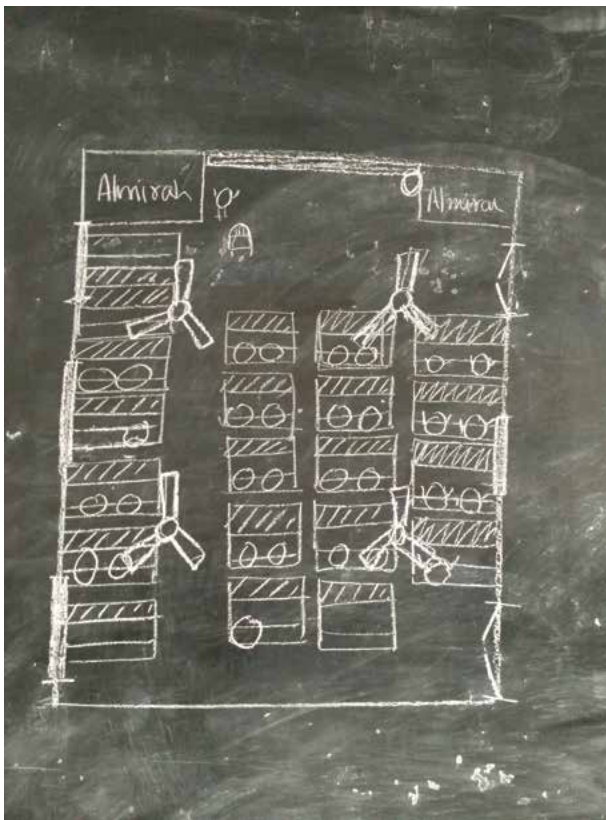 Almirah
Almirah